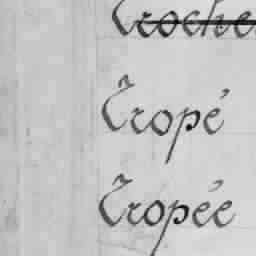 Croche
Tropé
Tropée